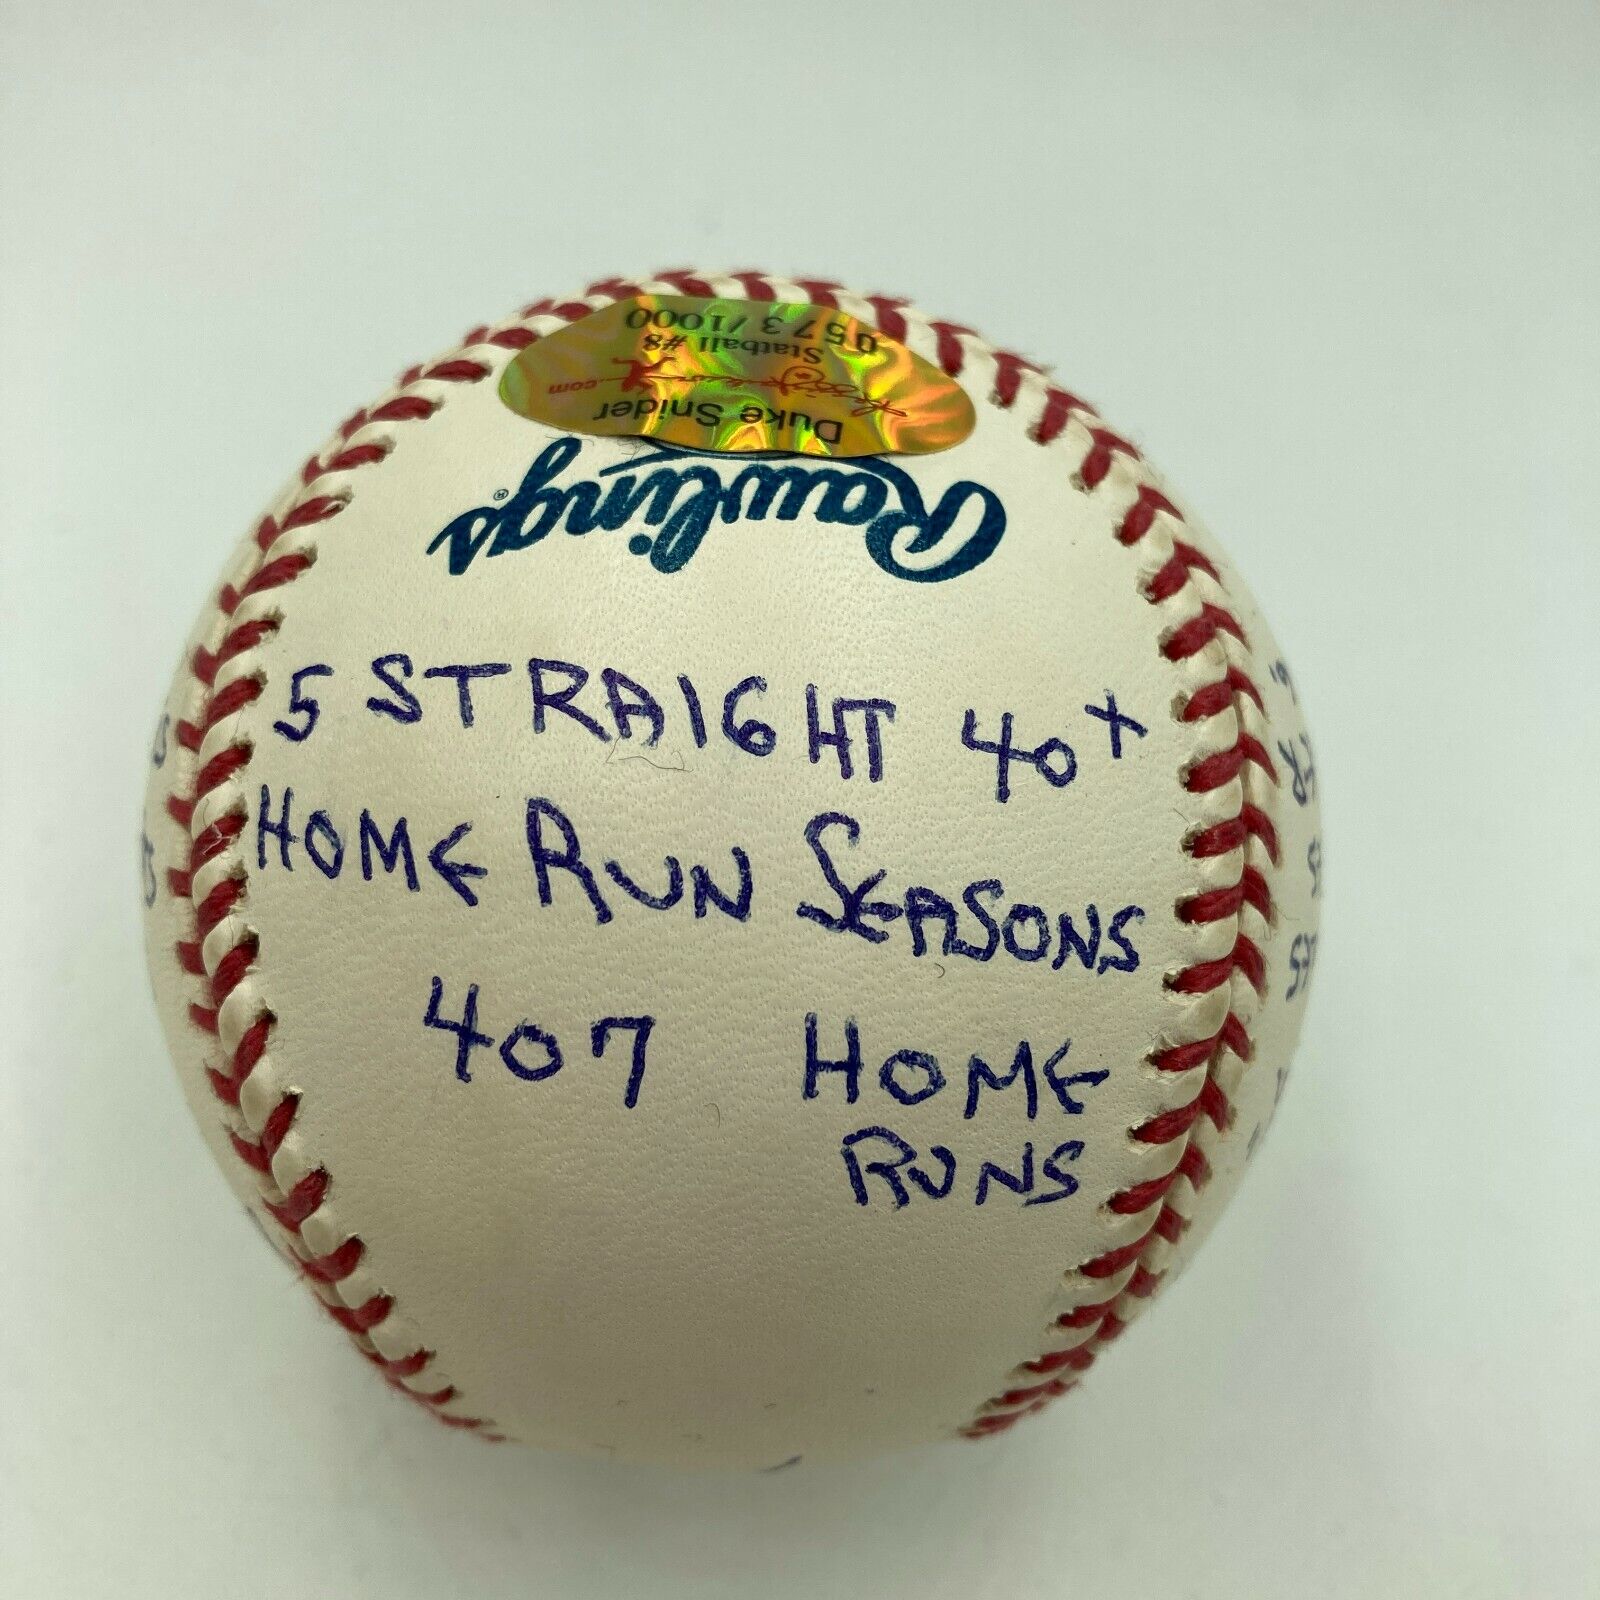 0573/1000
Statball #8
.com
Duke Snider
Rawlings®
5 STRAIGHT 40+
HOME RUN SEASONS
407 HOME
RUNS